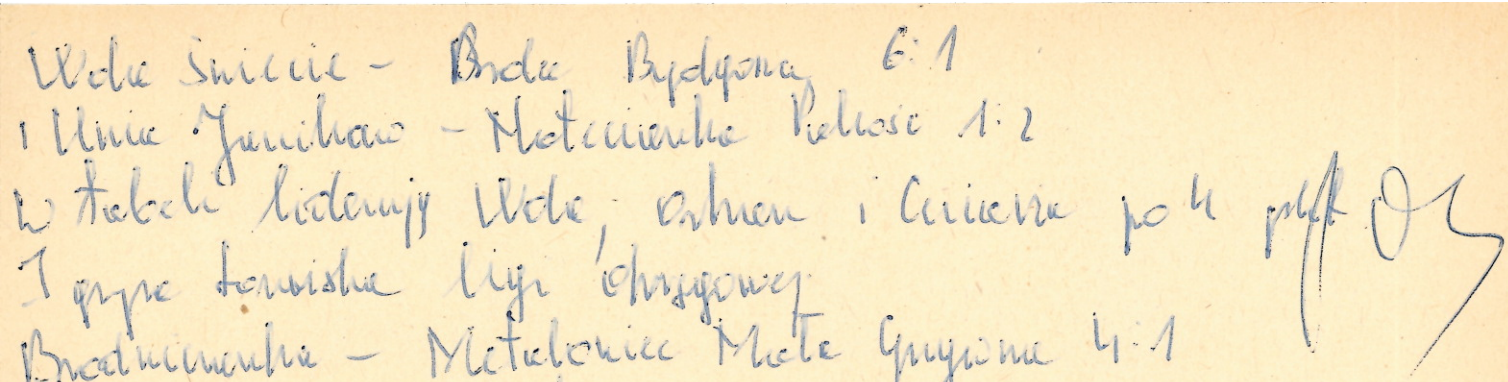 Wda Świecie - Brda Bydgoszcz 6:1
i Unia Janikowo - Noteczanka Pakość 1:2
W tabeli liderują Wda, i Cuiavia po 4 pkt
I grupa toruńska ligi okręgowej
Brodniczanka - Metalowiec Mała Grzywna 4:1